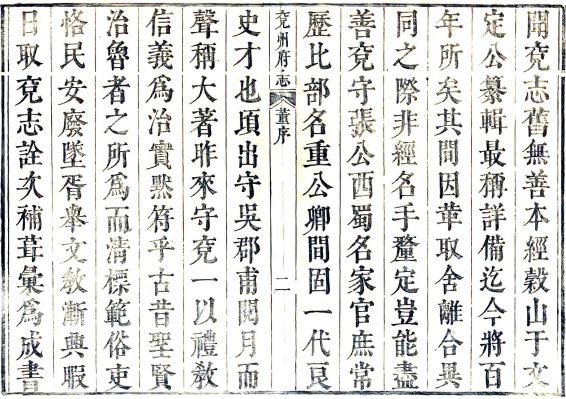 聞兗志舊無善本經穀山于文
定公纂輯最稱詳備迄今將百
年所矣其間因革取舍離合異
同之際非經名手釐定豈能盡
善兗守張公西蜀名家官庶常
歷比部名重公卿間固一代良
兗州府志
董序
二
史才也頃出守吳郡甫閱月而
聲稱大著昨來守兗一以禮教
信義爲治實黙符乎古昔聖賢
治魯者之所爲而清標範俗吏
恪民安廢墜胥舉文教漸興暇
日取兗志詮次補葺彙爲成書